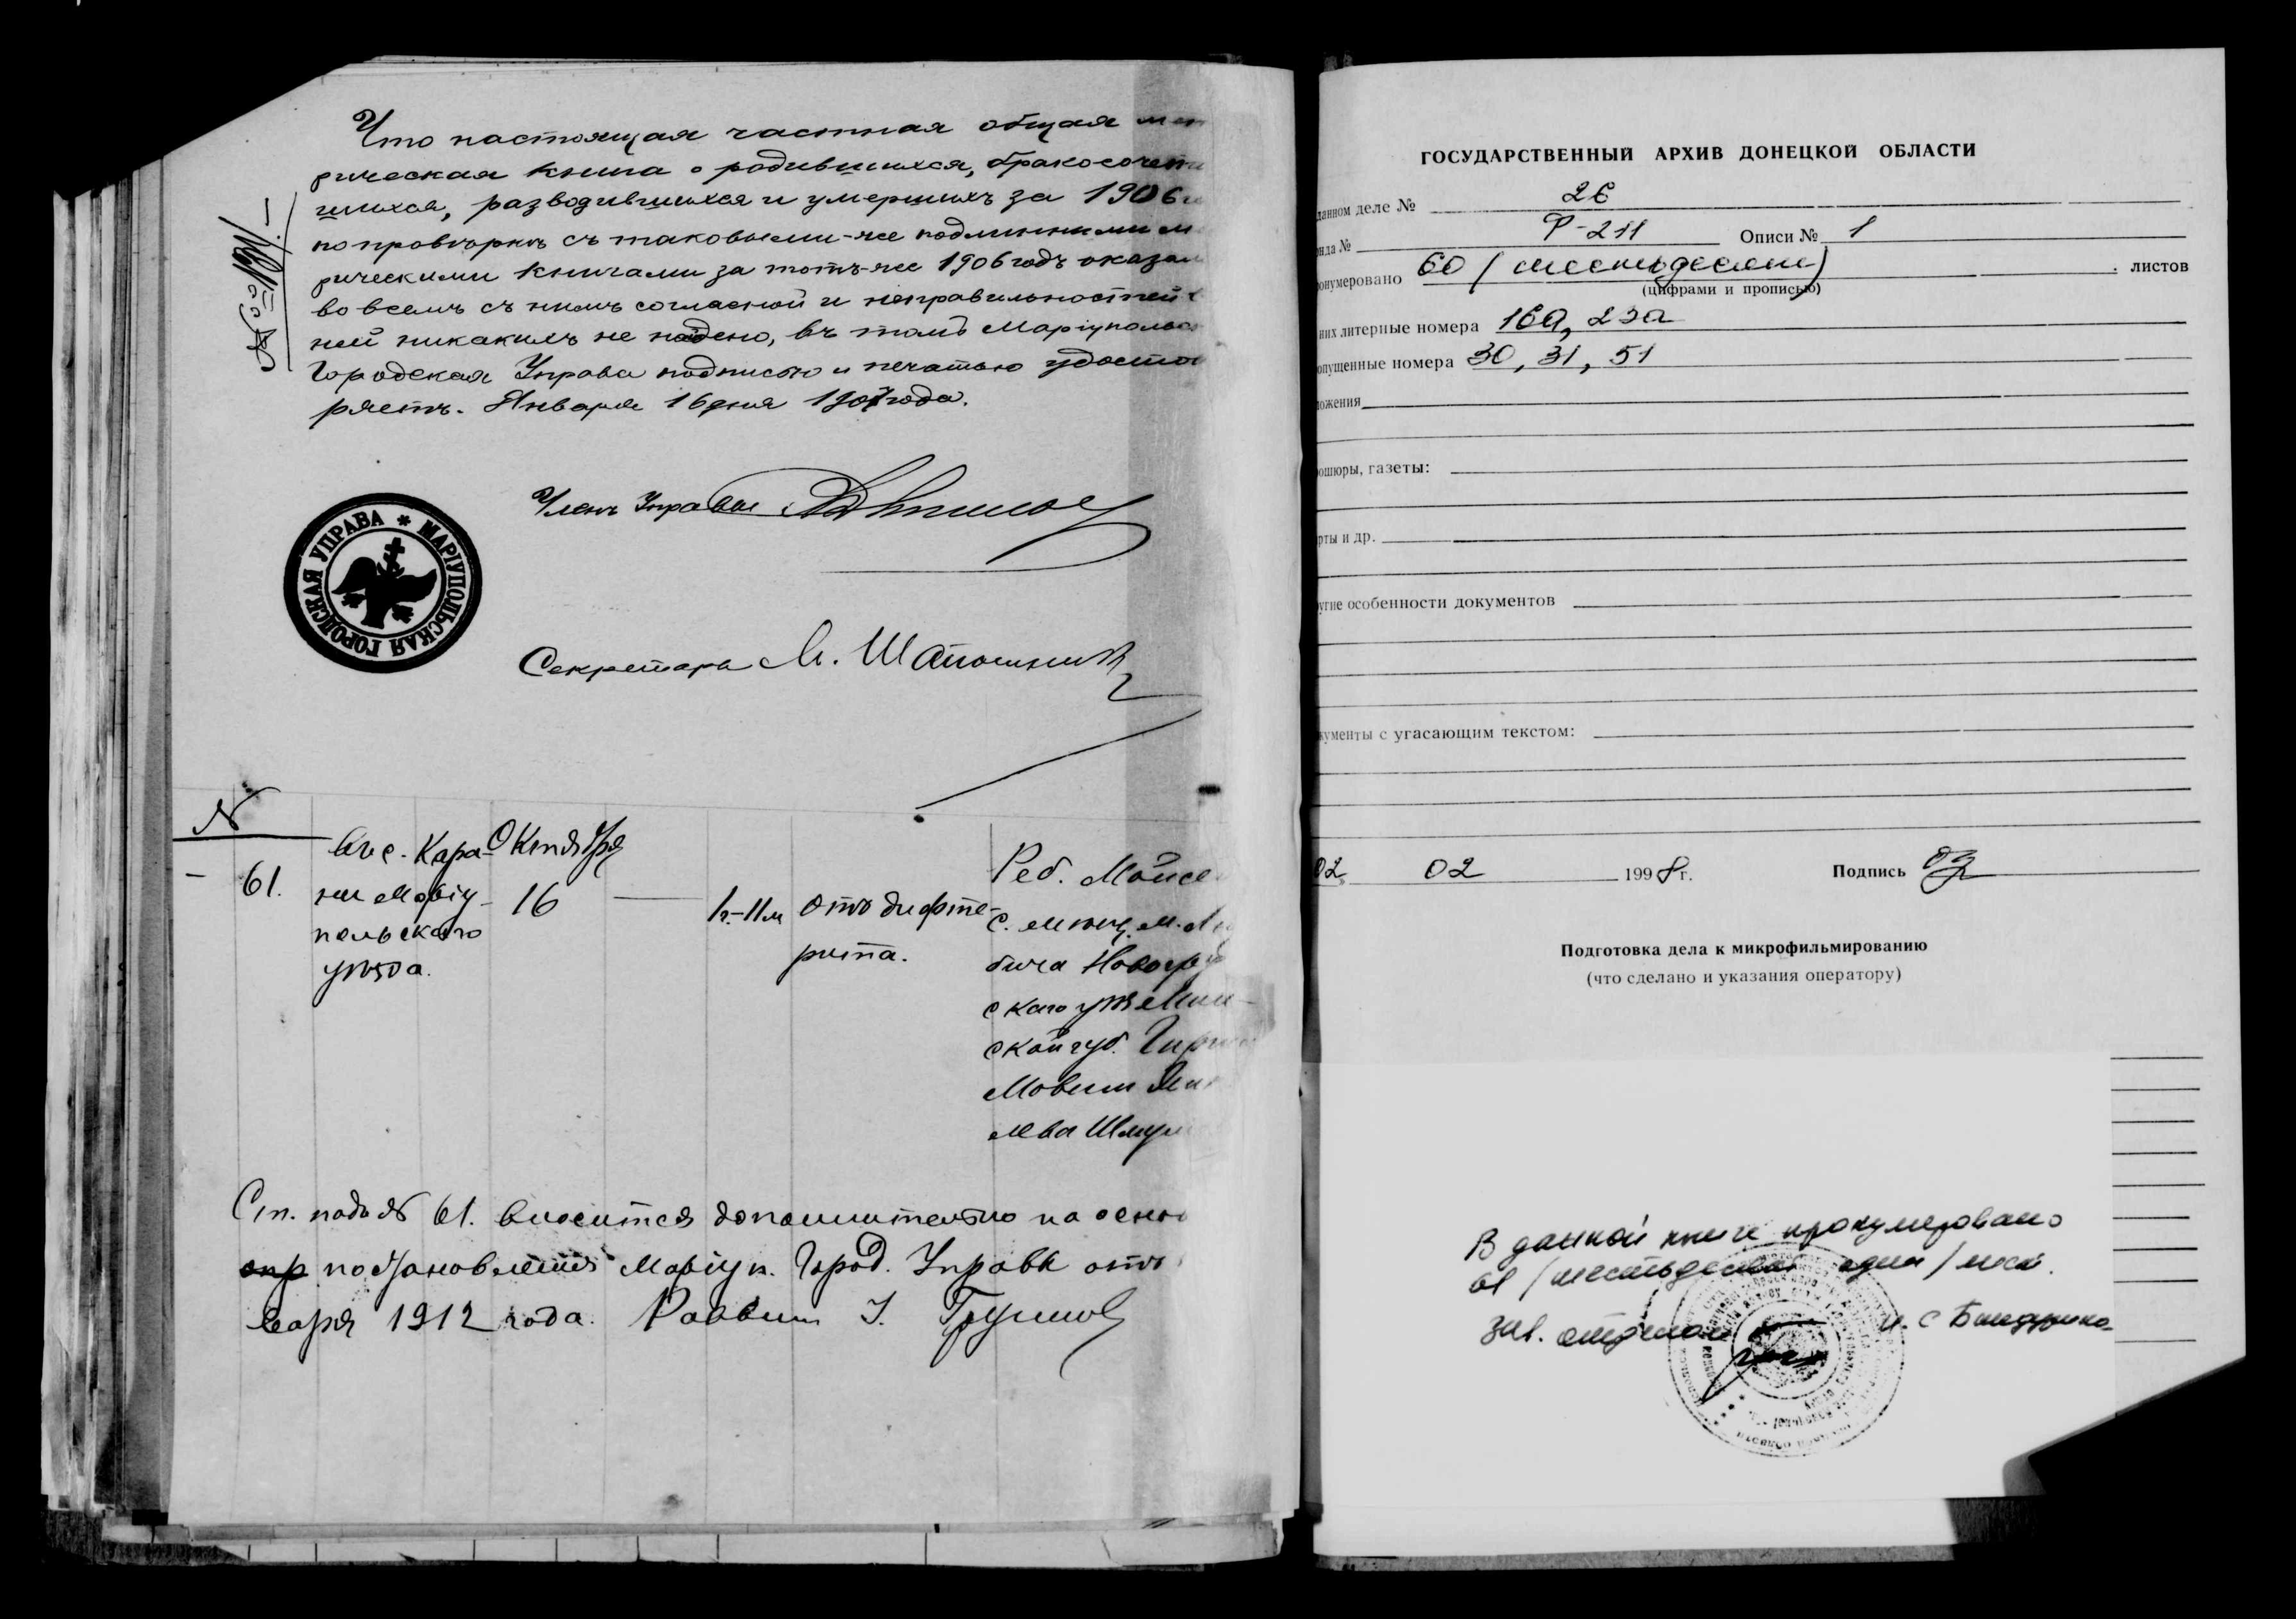 Что настоящая частная общая
рическая книга о родившихся, бракосочет
шихся, разводившихся и умершихъ за 1906
по провѣркѣ съ таковыми-же подлинными м
рическими книгами за тотъ-же 1906 годъ оказал
во всемъ съ нимъ согласной и неправильностей
ней никакихъ не найдено, въ томъ Маріупольс
Городская Управа подписью и печатью удосто
ряетъ. Января 16 дня 1907 года.
Членъ Управы
МАРІУПОЛЬСКАЯ ГОРОДСКАЯ УПРАВА
Секретарь М. Шапошник
№
61.
Въ с. Кара-
ни Маріу-
польского
уѣзда.
Октября
16
1г.-11м
отъ дифте-
рита.
Реб. Мойсе
с. мѣщ. м.
бича Новогру
скаго уѣз. Мин-
ской губ.
Мовши
ева Шмуй
Ст. подъ № 61. вносится дополнительно на осно
постановленія Маріуп. Город. Управы отъ
варя 1912 года. Раввин
ГОСУДАРСТВЕННЫЙ АРХИВ ДОНЕЦКОЙ ОБЛАСТИ
данном деле № 26
нда № Р-211 Описи № 1
онумеровано 60 (шестьдесят) листов
(цифрами и прописью)
них литерные номера 16а, 23а
опущенные номера 30, 31, 51
ложения
ошюры, газеты:
рты и др.
угие особенности документов
кументы с угасающим текстом:
02 02 1998 г. Подпись
Подготовка дела к микрофильмированию
(что сделано и указания оператору)
В данной книге пронумеровано
61 /шестьдесят один/ лист.
Зав. отделом